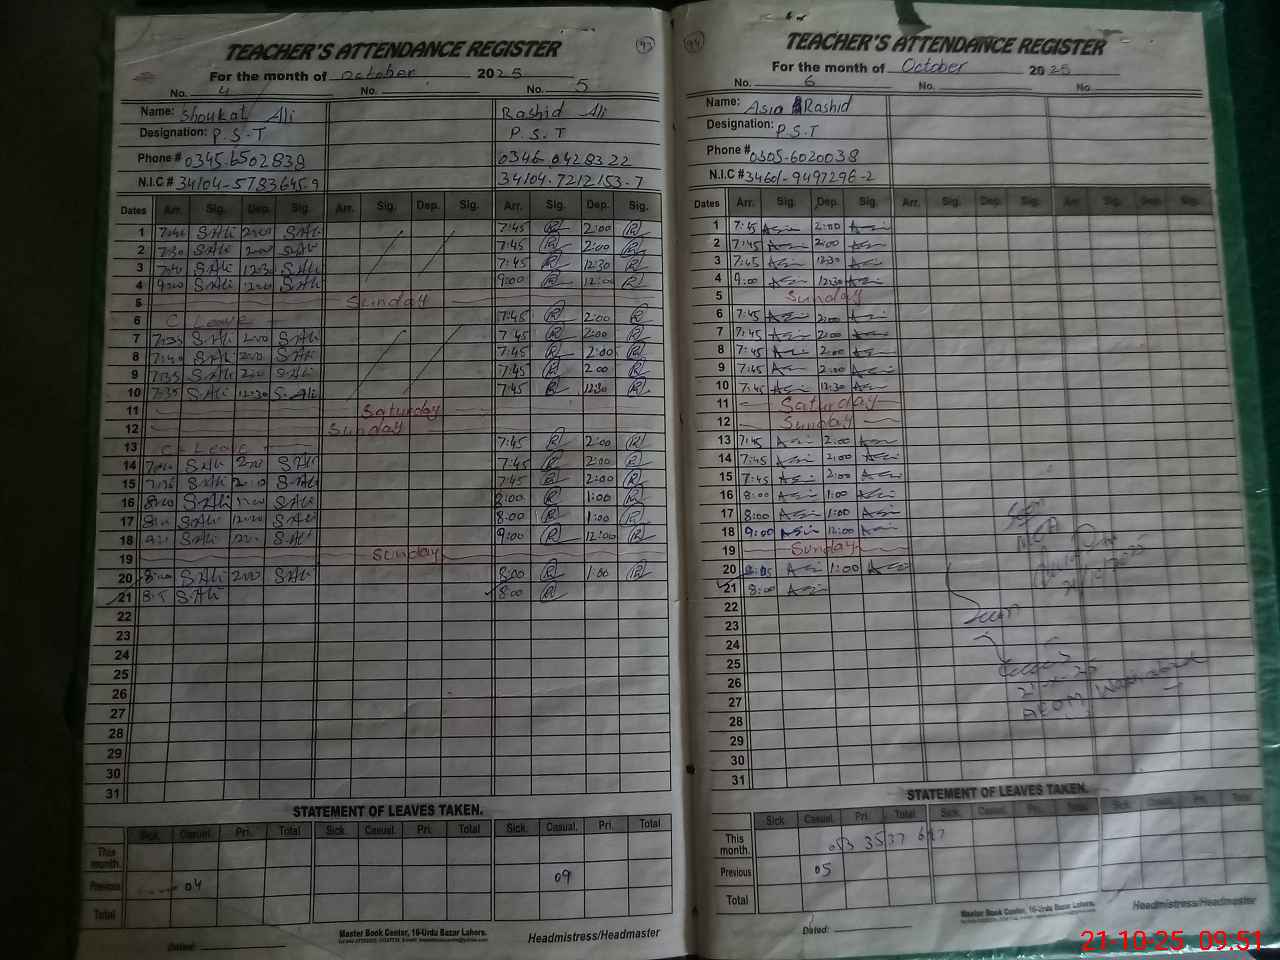 93
TEACHER'S ATTENDANCE REGISTER
For the month of October 2025
No. 4 No. No. 5
Name: Shoukat Ali Rashid Ali
Designation: P.S.T P.S.T
Phone # 0345-6502838 0346-0428322
N.I.C # 34104-57836459 34104-7212153-7
Dates Arr. Sig. Dep. Sig. Arr. Sig. Dep. Sig. Arr. Sig. Dep. Sig.
1 S.Ali 2:00 S.Ali 7:45 R 2:00 R
2 7:30 S.Ali 2:00 S.Ali 7:45 R 2:00 R
3 7:40 S.Ali 12:30 S.Ali 7:45 R 12:30 R
4 9:00 S.Ali 12:00 S.Ali 9:00 R 12:00 R
5 Sunday
6 C Leave 7:45 R 2:00 R
7 7:35 S.Ali 2:00 S.Ali 7:45 R 2:00 R
8 S.Ali 2:00 S.Ali 7:45 R 2:00 R
9 7:35 S.Ali 2:00 S.Ali 7:45 R 2:00 R
10 7:35 S.Ali 12:30 S.Ali 7:45 R 12:30 R
11 Saturday
12 Sunday
13 C Leave 7:45 R 2:00 R
14 S.Ali 2:00 S.Ali 7:45 R 2:00 R
15 S.Ali S.Ali 7:45 R 2:00 R
16 8:00 S.Ali S.Ali 8:00 R 1:00 R
17 S.Ali S.Ali 8:00 R 1:00 R
18 S.Ali S.Ali 9:00 R 12:00 R
19 Sunday
20 8:00 S.Ali 2:00 S.Ali 8:00 R 1:00 R
21 8:5 S.Ali 8:00 R
22
23
24
25
26
27
28
29
30
31
STATEMENT OF LEAVES TAKEN.
Sick. Casual. Pri. Total Sick. Casual. Pri. Total Sick. Casual. Pri. Total
This month.
Previous 04 09
Total
Master Book Center, 16-Urdu Bazar Lahore.
Dated: Headmistress/Headmaster
94
TEACHER'S ATTENDANCE REGISTER
For the month of October 2025
No. 6 No. No
Name: Asia Rashid
Designation: P.S.T
Phone # 0305-6020038
N.I.C # 34601-9497296-2
Dates Arr. Sig. Dep. Sig. Arr. Sig. Dep. Sig. Arr. Sig. Dep. Sig.
1 7:45 Asia 2:00 Asia
2 7:45 Asia 2:00 Asia
3 7:45 Asia 12:30 Asia
4 9:00 Asia 12:30 Asia
5 Sunday
6 7:45 Asia 2:00 Asia
7 7:45 Asia 2:00 Asia
8 7:45 Asia 2:00 Asia
9 7:45 Asia 2:00 Asia
10 7:45 Asia 12:30 Asia
11 Saturday
12 Sunday
13 7:45 Asia 2:00 Asia
14 7:45 Asia 2:00 Asia
15 7:45 Asia 2:00 Asia
16 8:00 Asia 1:00 Asia
17 8:00 Asia 1:00 Asia
18 9:00 Asia 12:00 Asia
19 Sunday
20 8:05 Asia 1:00 Asia
21 8:00 Asia
22
23 Seen
24
25
26
27
28
29
30
31
STATEMENT OF LEAVES TAKEN.
Sick. Casual. Pri. Total Sick. Casual. Pri. Total Sick. Casual. Pri. Total
This month.
Previous 05
Total
Master Book Center, 16-Urdu Bazar Lahore.
Dated: Headmistress/Headmaster
21-10-25 09:51